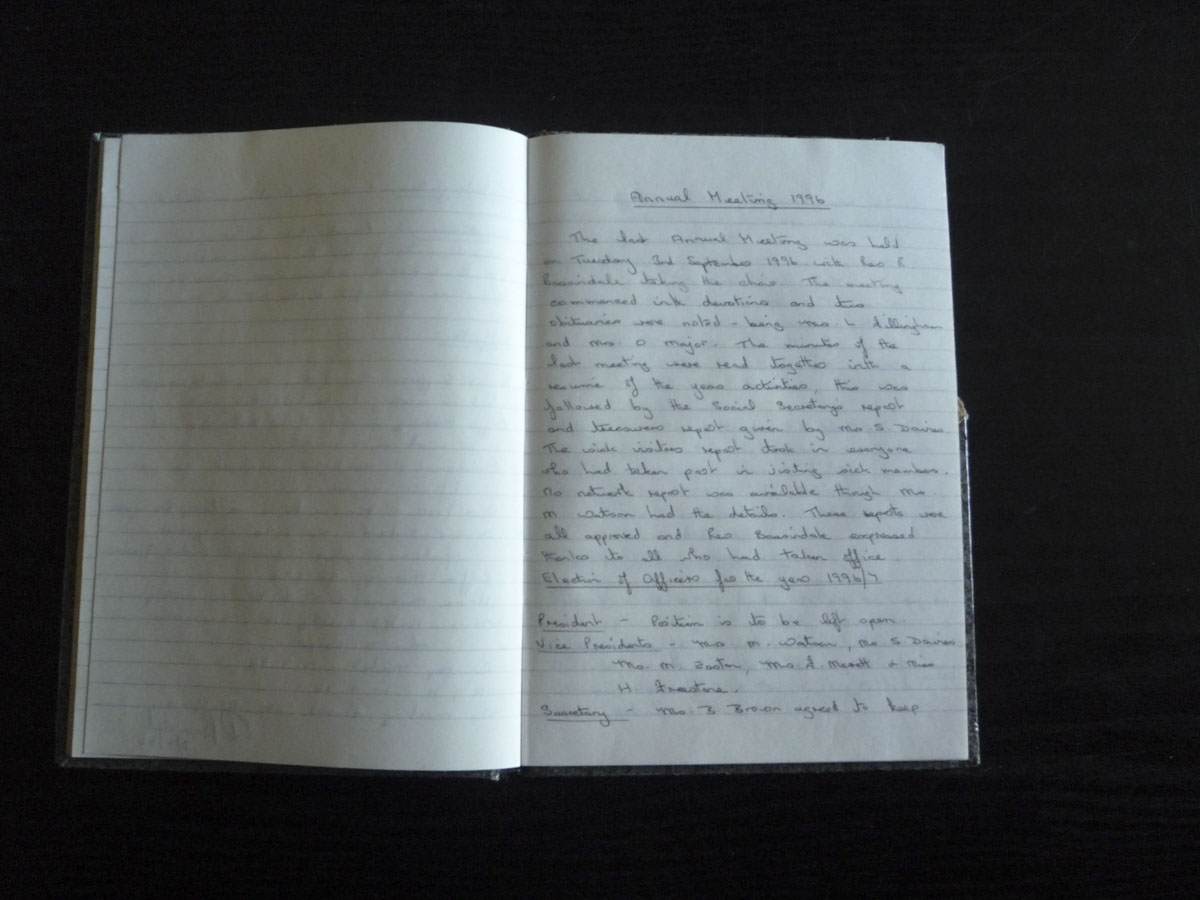 Annual Meeting 1996
The last Annual Meeting was held
on Tuesday 3rd September 1996 with Rev R.
taking the chair. The meeting
commenced with devotions and two
obituaries were noted - being Mrs. L. Fillingham
and Mrs. O Major. The minutes of the
last meeting were read together with a
resumé of the years activities, this was
followed by the Social Secretary's report
and treasurers report given by Mrs S Davies.
The sick visitors report took in everyone
who had taken part in visiting sick members.
No network report was available though Mrs.
M. Watson had the details. These reports were
all approved and Rev expressed
thanks to all who had taken office.
Election of Officers for the year 1996/7
President - Position is to be left open.
Vice Presidents - Mrs. M. Watson, Mrs S Davies
Mrs. M. Easton, Mrs. & Miss
H. Freestone.
Secretary - Mrs. B Brown agreed to keep